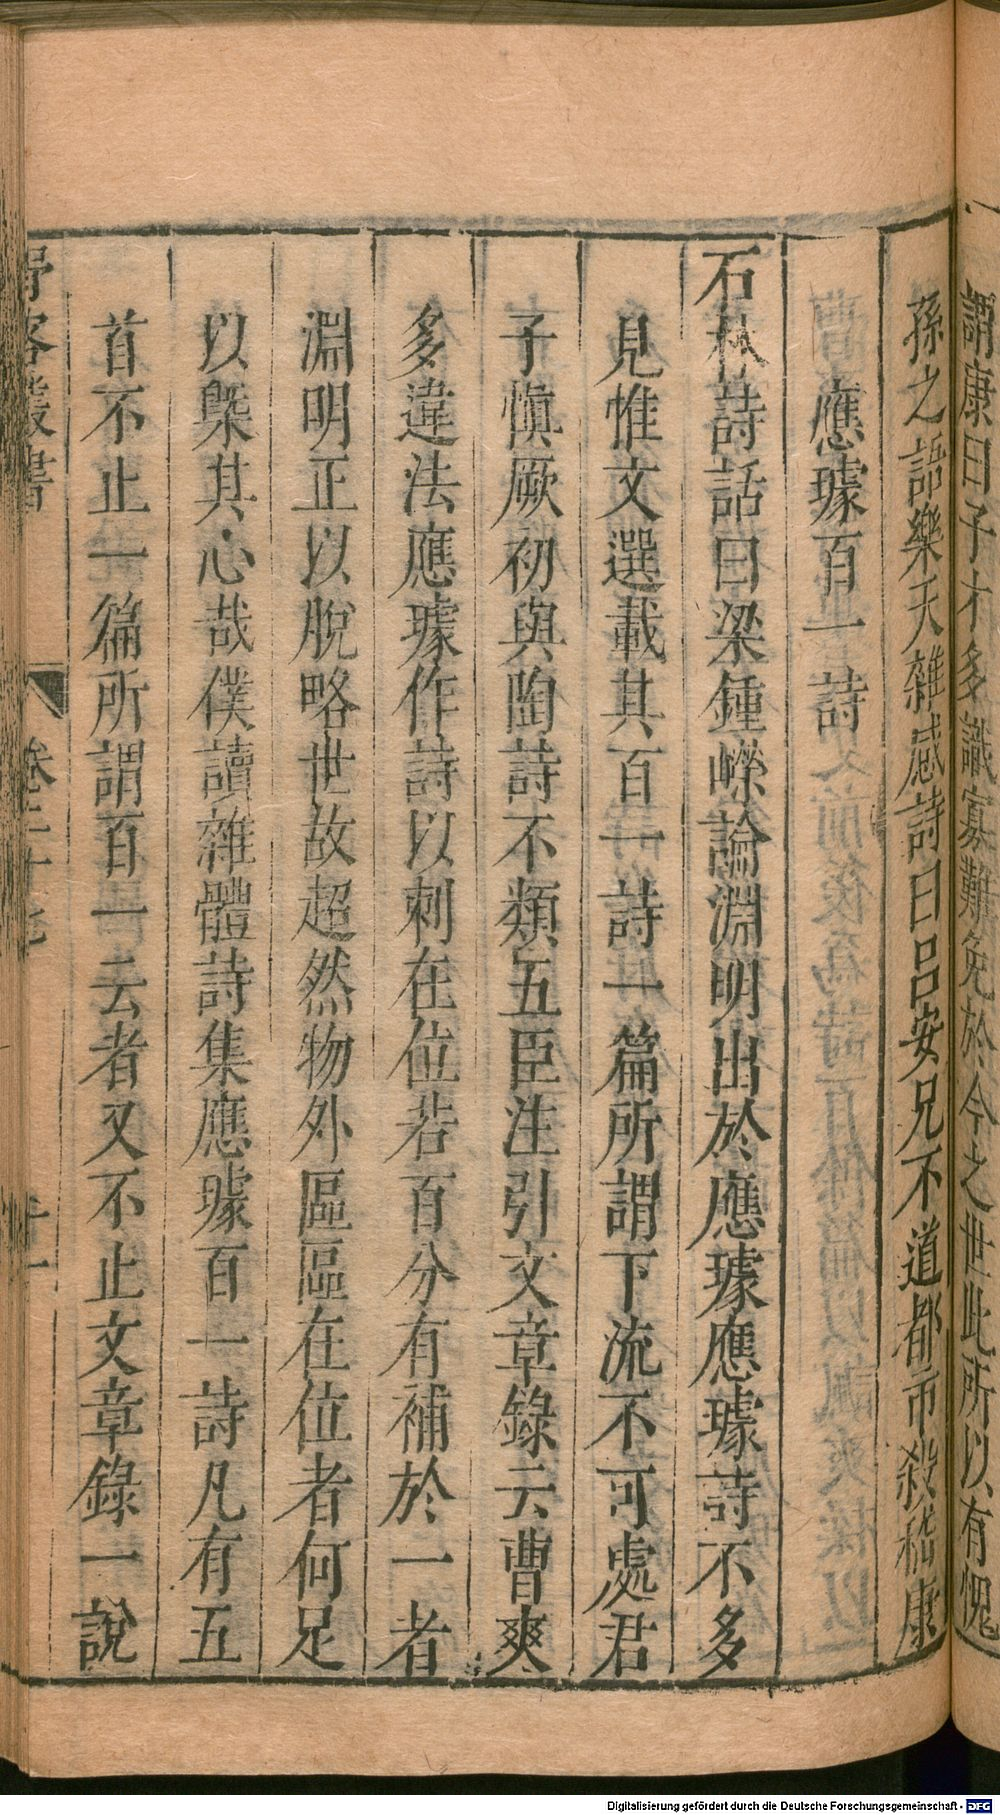 謂康曰子才多識寡難免於今之世此所以有愧
孫之語樂天雜感詩曰呂安兄不道都市殺嵇康
應璩百一詩
石林詩話曰梁鍾嶸論淵明出於應璩應璩詩不多
見惟文選載其百一詩一篇所謂下流不可處君
子慎厥初與陶詩不類五臣注引文章錄云曹爽
多違法應璩作詩以刺在位若百分有補於一者
淵明正以脫略世故超然物外區區在位者何足
以槩其心哉僕讀雜體詩集應璩百一詩凡有五
首不止一篇所謂百一云者又不止文章錄一說
客叢書
卷二十
十一
Digitalisierung gefördert durch die Deutsche Forschungsgemeinschaft - DFG